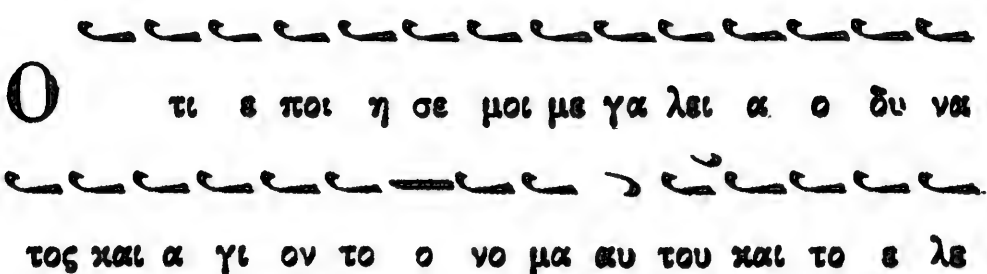 Ο τι ε ποι η σε μοι με γα λει α ο δυ να
τος και α γι ον το ο νο μα αυ του και το ε λε